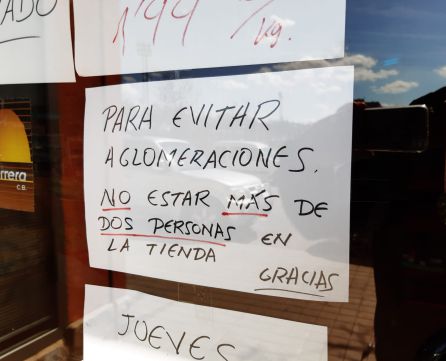 1'99 €/kg.
PARA EVITAR
AGLOMERACIONES.
NO ESTAR MÁS DE
DOS PERSONAS EN
LA TIENDA
GRACIAS
C.B.
JUEVES